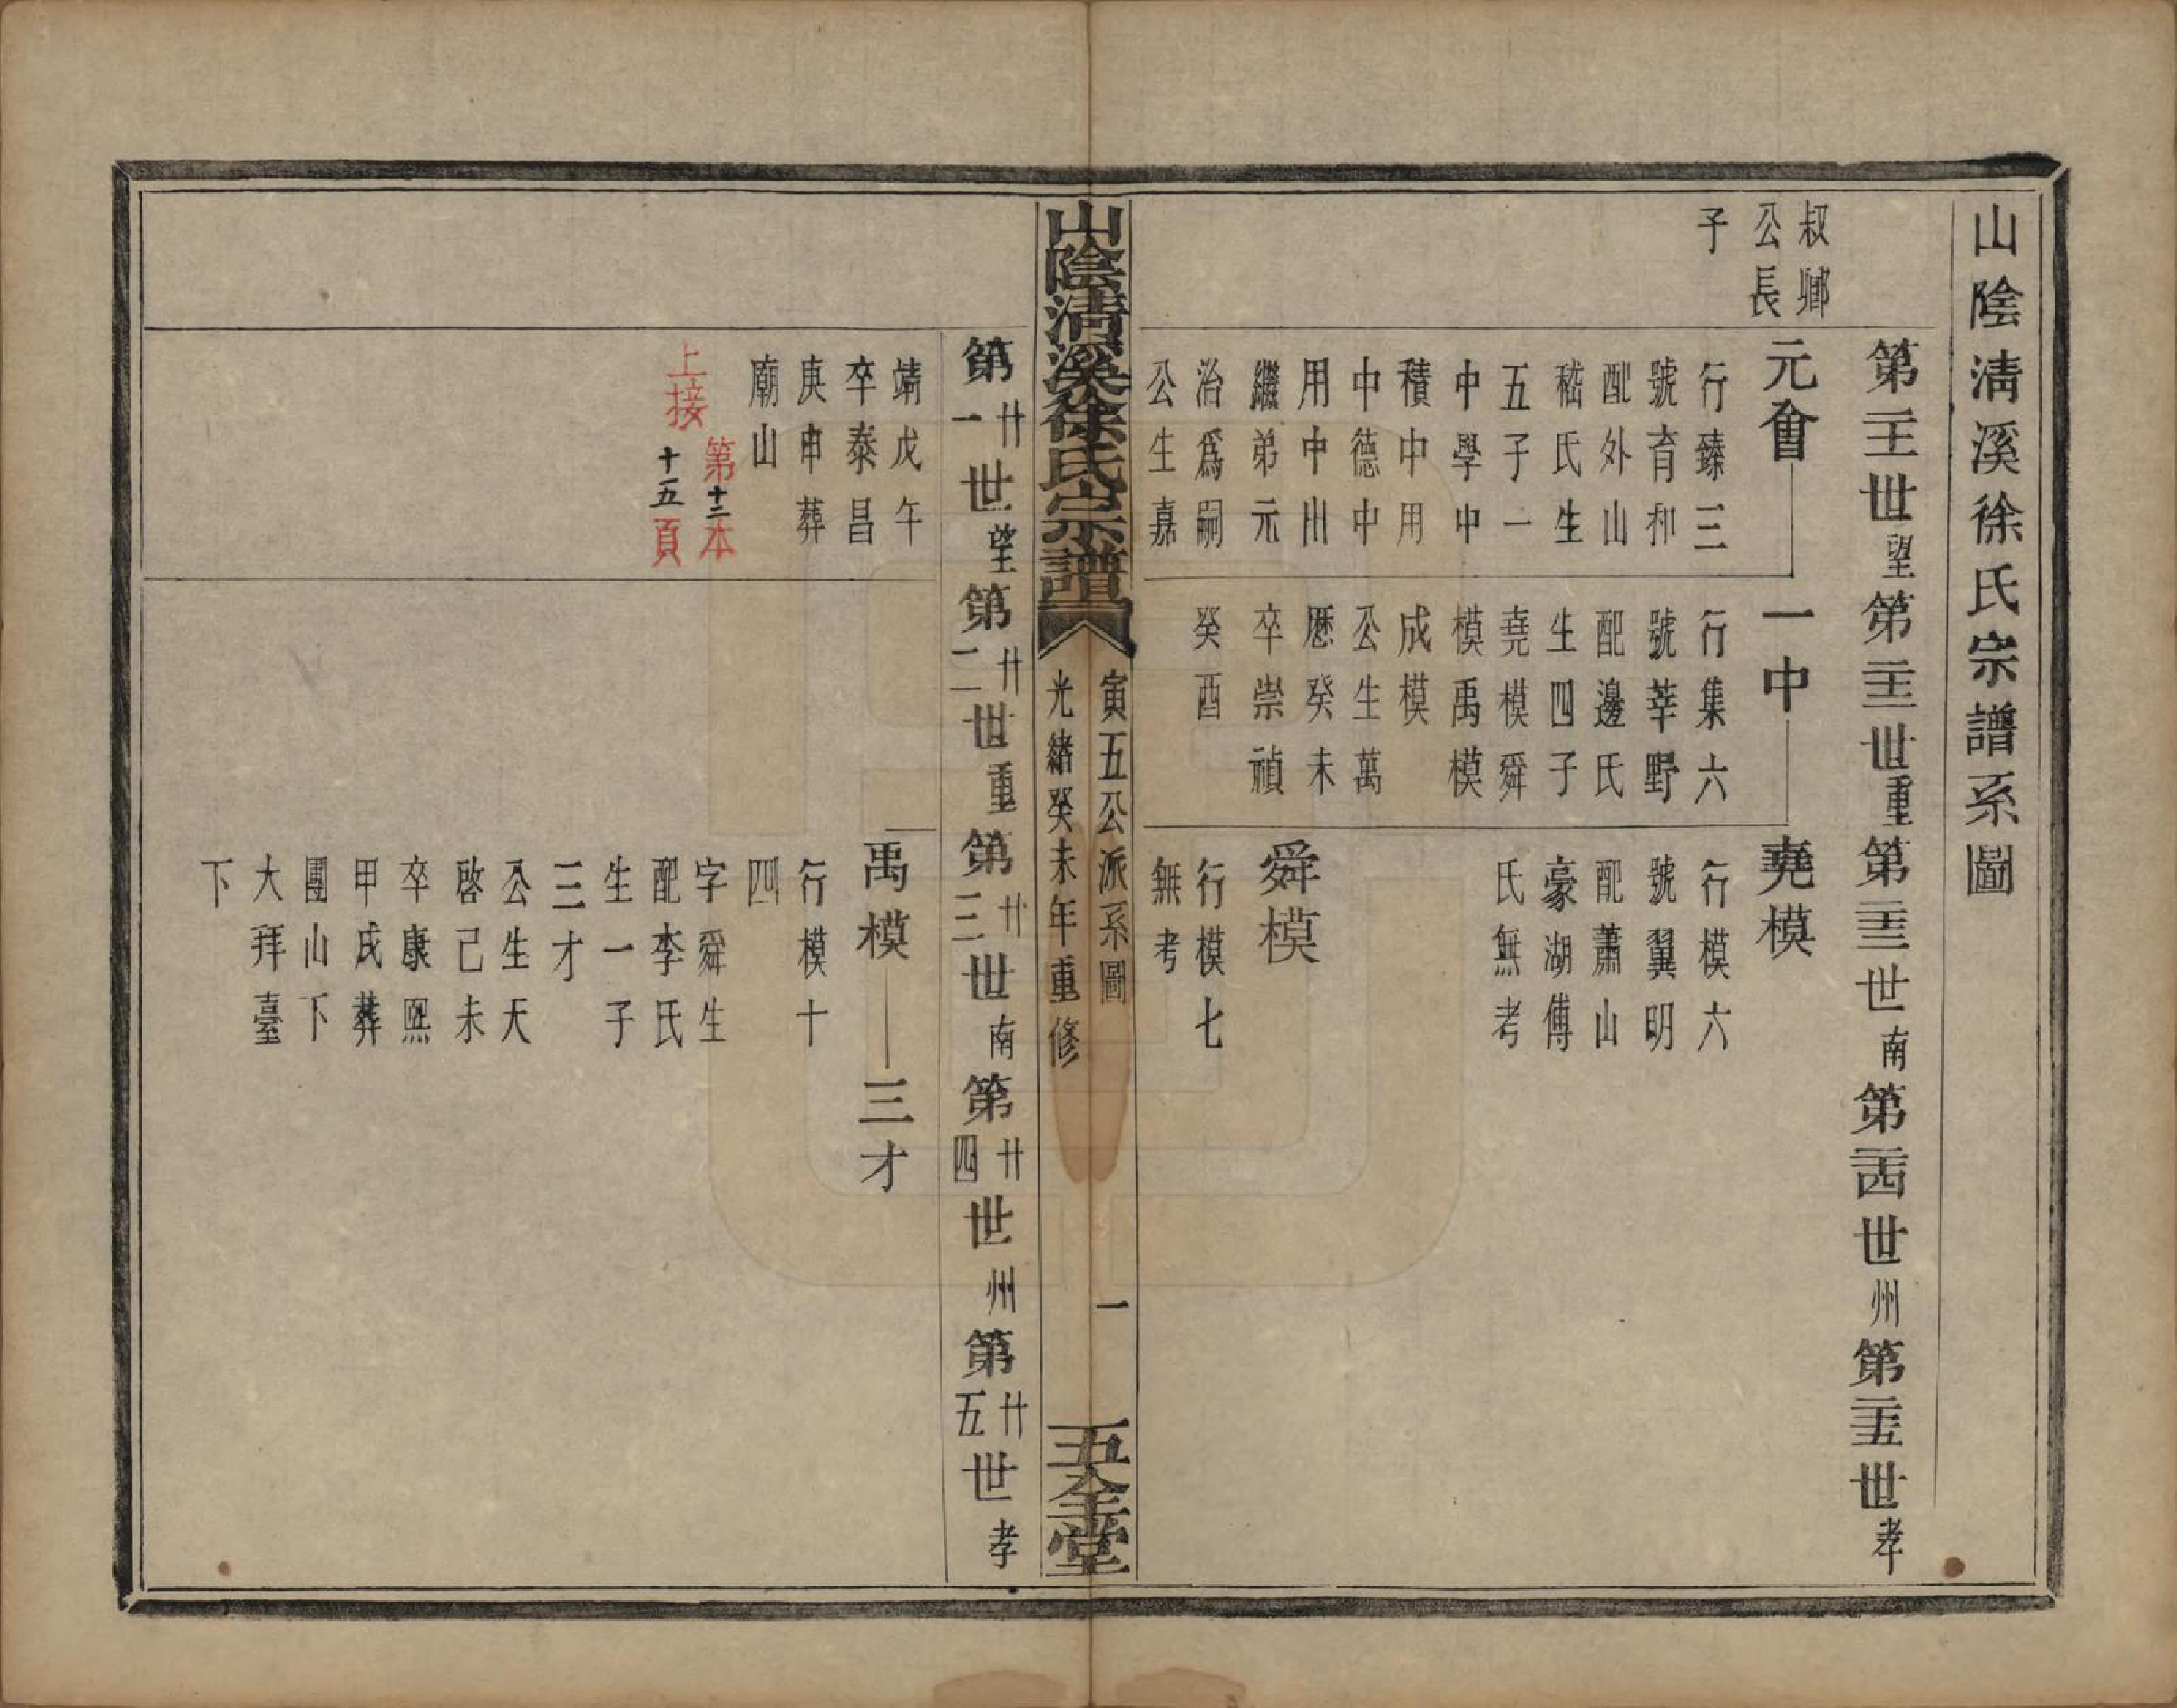 山陰淸溪徐氏宗譜系圖
第二十一世望第二十二世重第二十三世南第二十四世州第二十五世孝
叔卿
公長
子
元會
行臻三
號育和
配外山
嵇氏生
五子一
中學中
積中用
中德中
用中出
繼弟元
治爲嗣
公生嘉
一中
行集六
號莘野
配邊氏
生四子
堯模舜
模禹模
成模
公生萬
厯癸未
卒崇禎
癸酉
堯模
行模六
號翼明
配蕭山
豪湖傅
氏無考
舜模
行模七
無考
山陰淸溪徐氏宗譜
寅五公派系圖
光緖癸未年重修
一
五全堂
第廿一世望第廿二世重第廿三世南第廿四世州第廿五世孝
靖戊午
卒泰昌
庚申葬
廟山
第十二本
上接十五頁
禹模
三才
行模十
四
字舜生
配李氏
生一子
三才
公生天
啓己未
卒康熙
甲戌葬
團山下
大拜臺
下